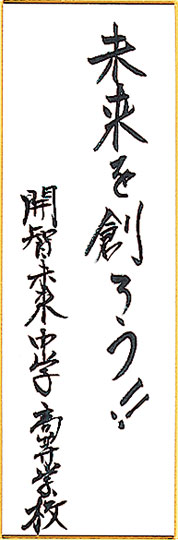 未来を創ろう!!
開智未来中学高等学校